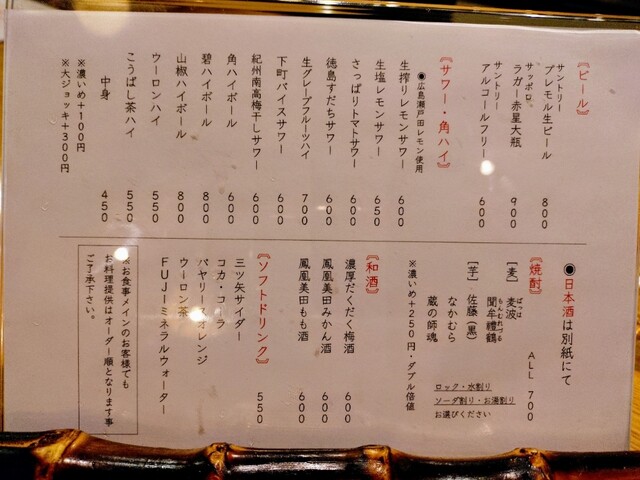 《ビール》
サントリー
プレモル生ビール 800
サッポロ
ラガー赤星大瓶 900
サントリー
アルコールフリー 600
《サワー・角ハイ》
◉広島瀬戸田レモン使用
生搾りレモンサワー 600
生塩レモンサワー 650
さっぱりトマトサワー 600
徳島すだちサワー 600
生グレープフルーツハイ 700
下町バイスサワー 600
紀州南高梅干しサワー 600
角ハイボール 600
碧ハイボール 800
山椒ハイボール 800
ウーロンハイ 550
こうばし茶ハイ 550
中身 450
※濃いめ+100円
※大ジョッキ+300円
◉日本酒は別紙にて
《焼酎》 ALL 700
[麦] 麦波
ばっは
聞牟禮鶴
もんむれづる
[芋] 佐藤(黒)
なかむら
蔵の師魂
ロック・水割り
ソーダ割り・お湯割り
お選びください
※濃いめ+250円・ダブル倍値
《和酒》
濃厚だくだく梅酒 600
鳳凰美田みかん酒 600
鳳凰美田もも酒 600
《ソフトドリンク》 550
三ツ矢サイダー
コカ・コーラ
バヤリースオレンジ
ウーロン茶
FUJIミネラルウォーター
※お食事メインのお客様でも
お料理提供はオーダー順となります事
ご了承下さい。